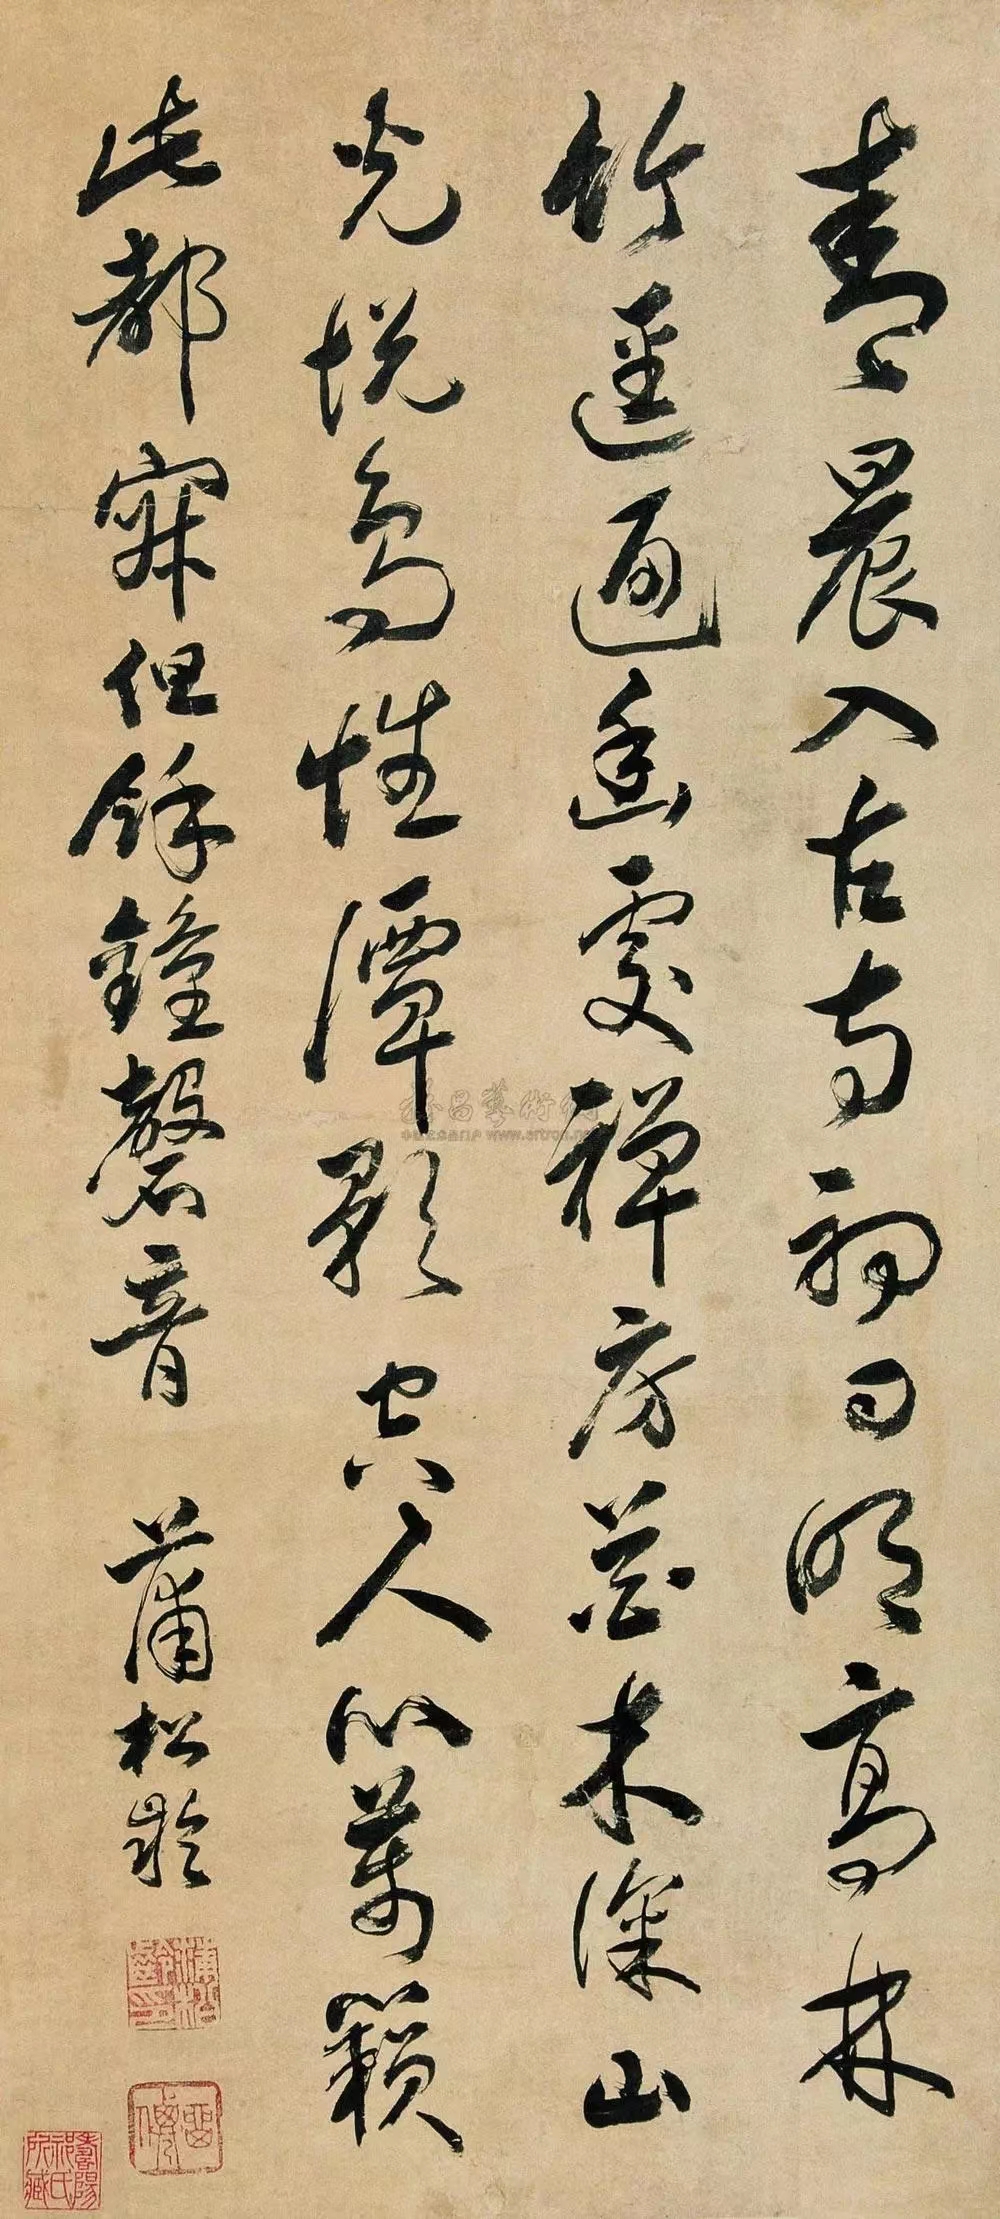 清晨入古寺初日明高林
竹逕通幽處禪房花木深山
光悅鳥性潭影空人心萬籟
此都寂但餘鐘磬音
蒲松齡
蒲松齡印
留僊
壽陽祁氏所藏
雅昌藝術網
www.artron.net